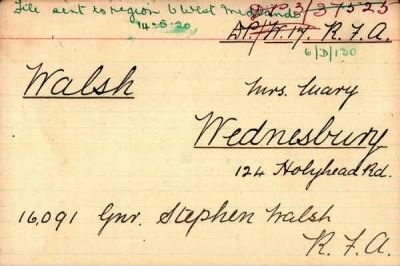 File sent to region 6 West Midlands
14-5-20
DP/W.17. R.F.A.
6/D/130
Walsh Mrs. Mary
Wednesbury
124 Holyhead Rd.
16,091 Gnr. Stephen Walsh
R.F.A.